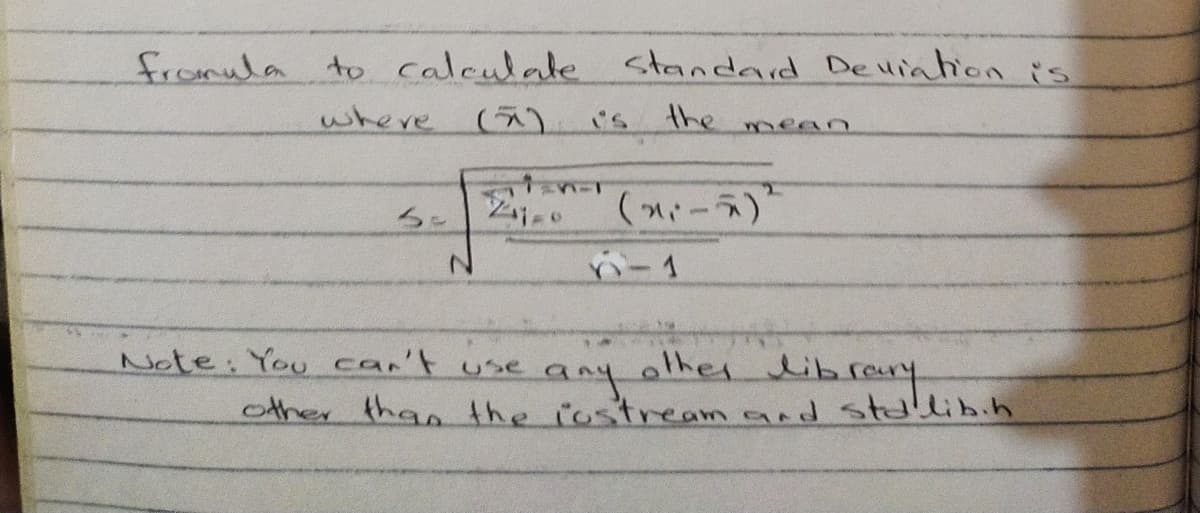 fromula to calculate standard Deviation is
where (x̄) is the mean
S = √ Σ i=0 i=n-1 (xi - x̄)²
n-1
Note: You can't use any other library
other than the iostream and stdlib.h